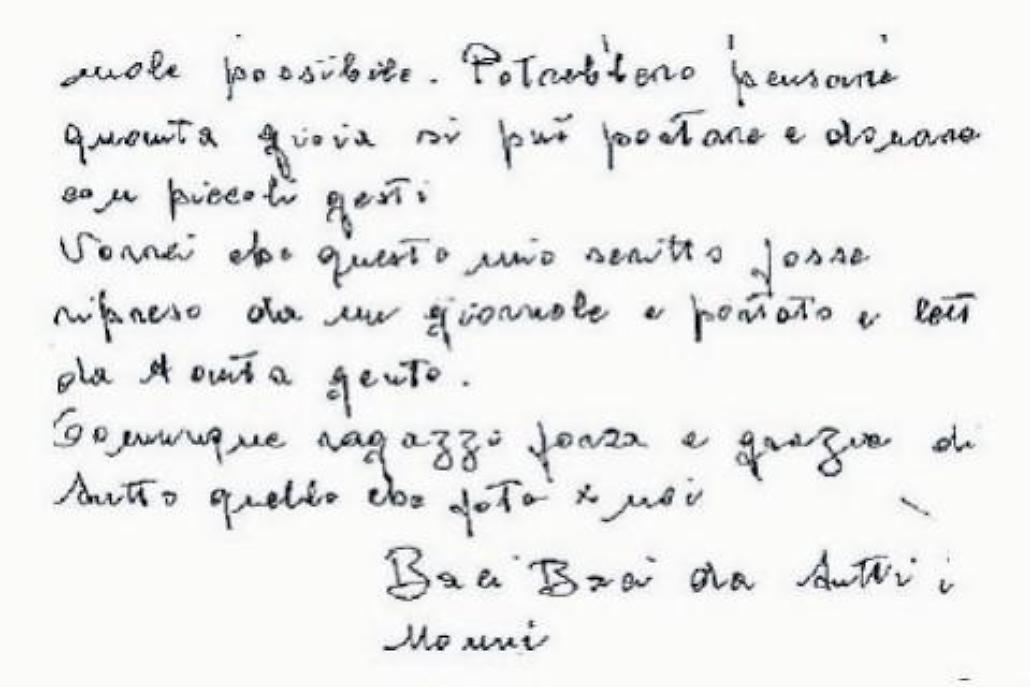 male possibile. Potrebbero pensare
quanta gioia si può portare e donare
con piccoli gesti
Vorrei che questo mio scritto fosse
ripreso da un giornale e portato e lett
da tanta gente.
Comunque ragazzi forza e grazie di
tutto quello che fate x noi
Baci Baci da tutti i
Nonni